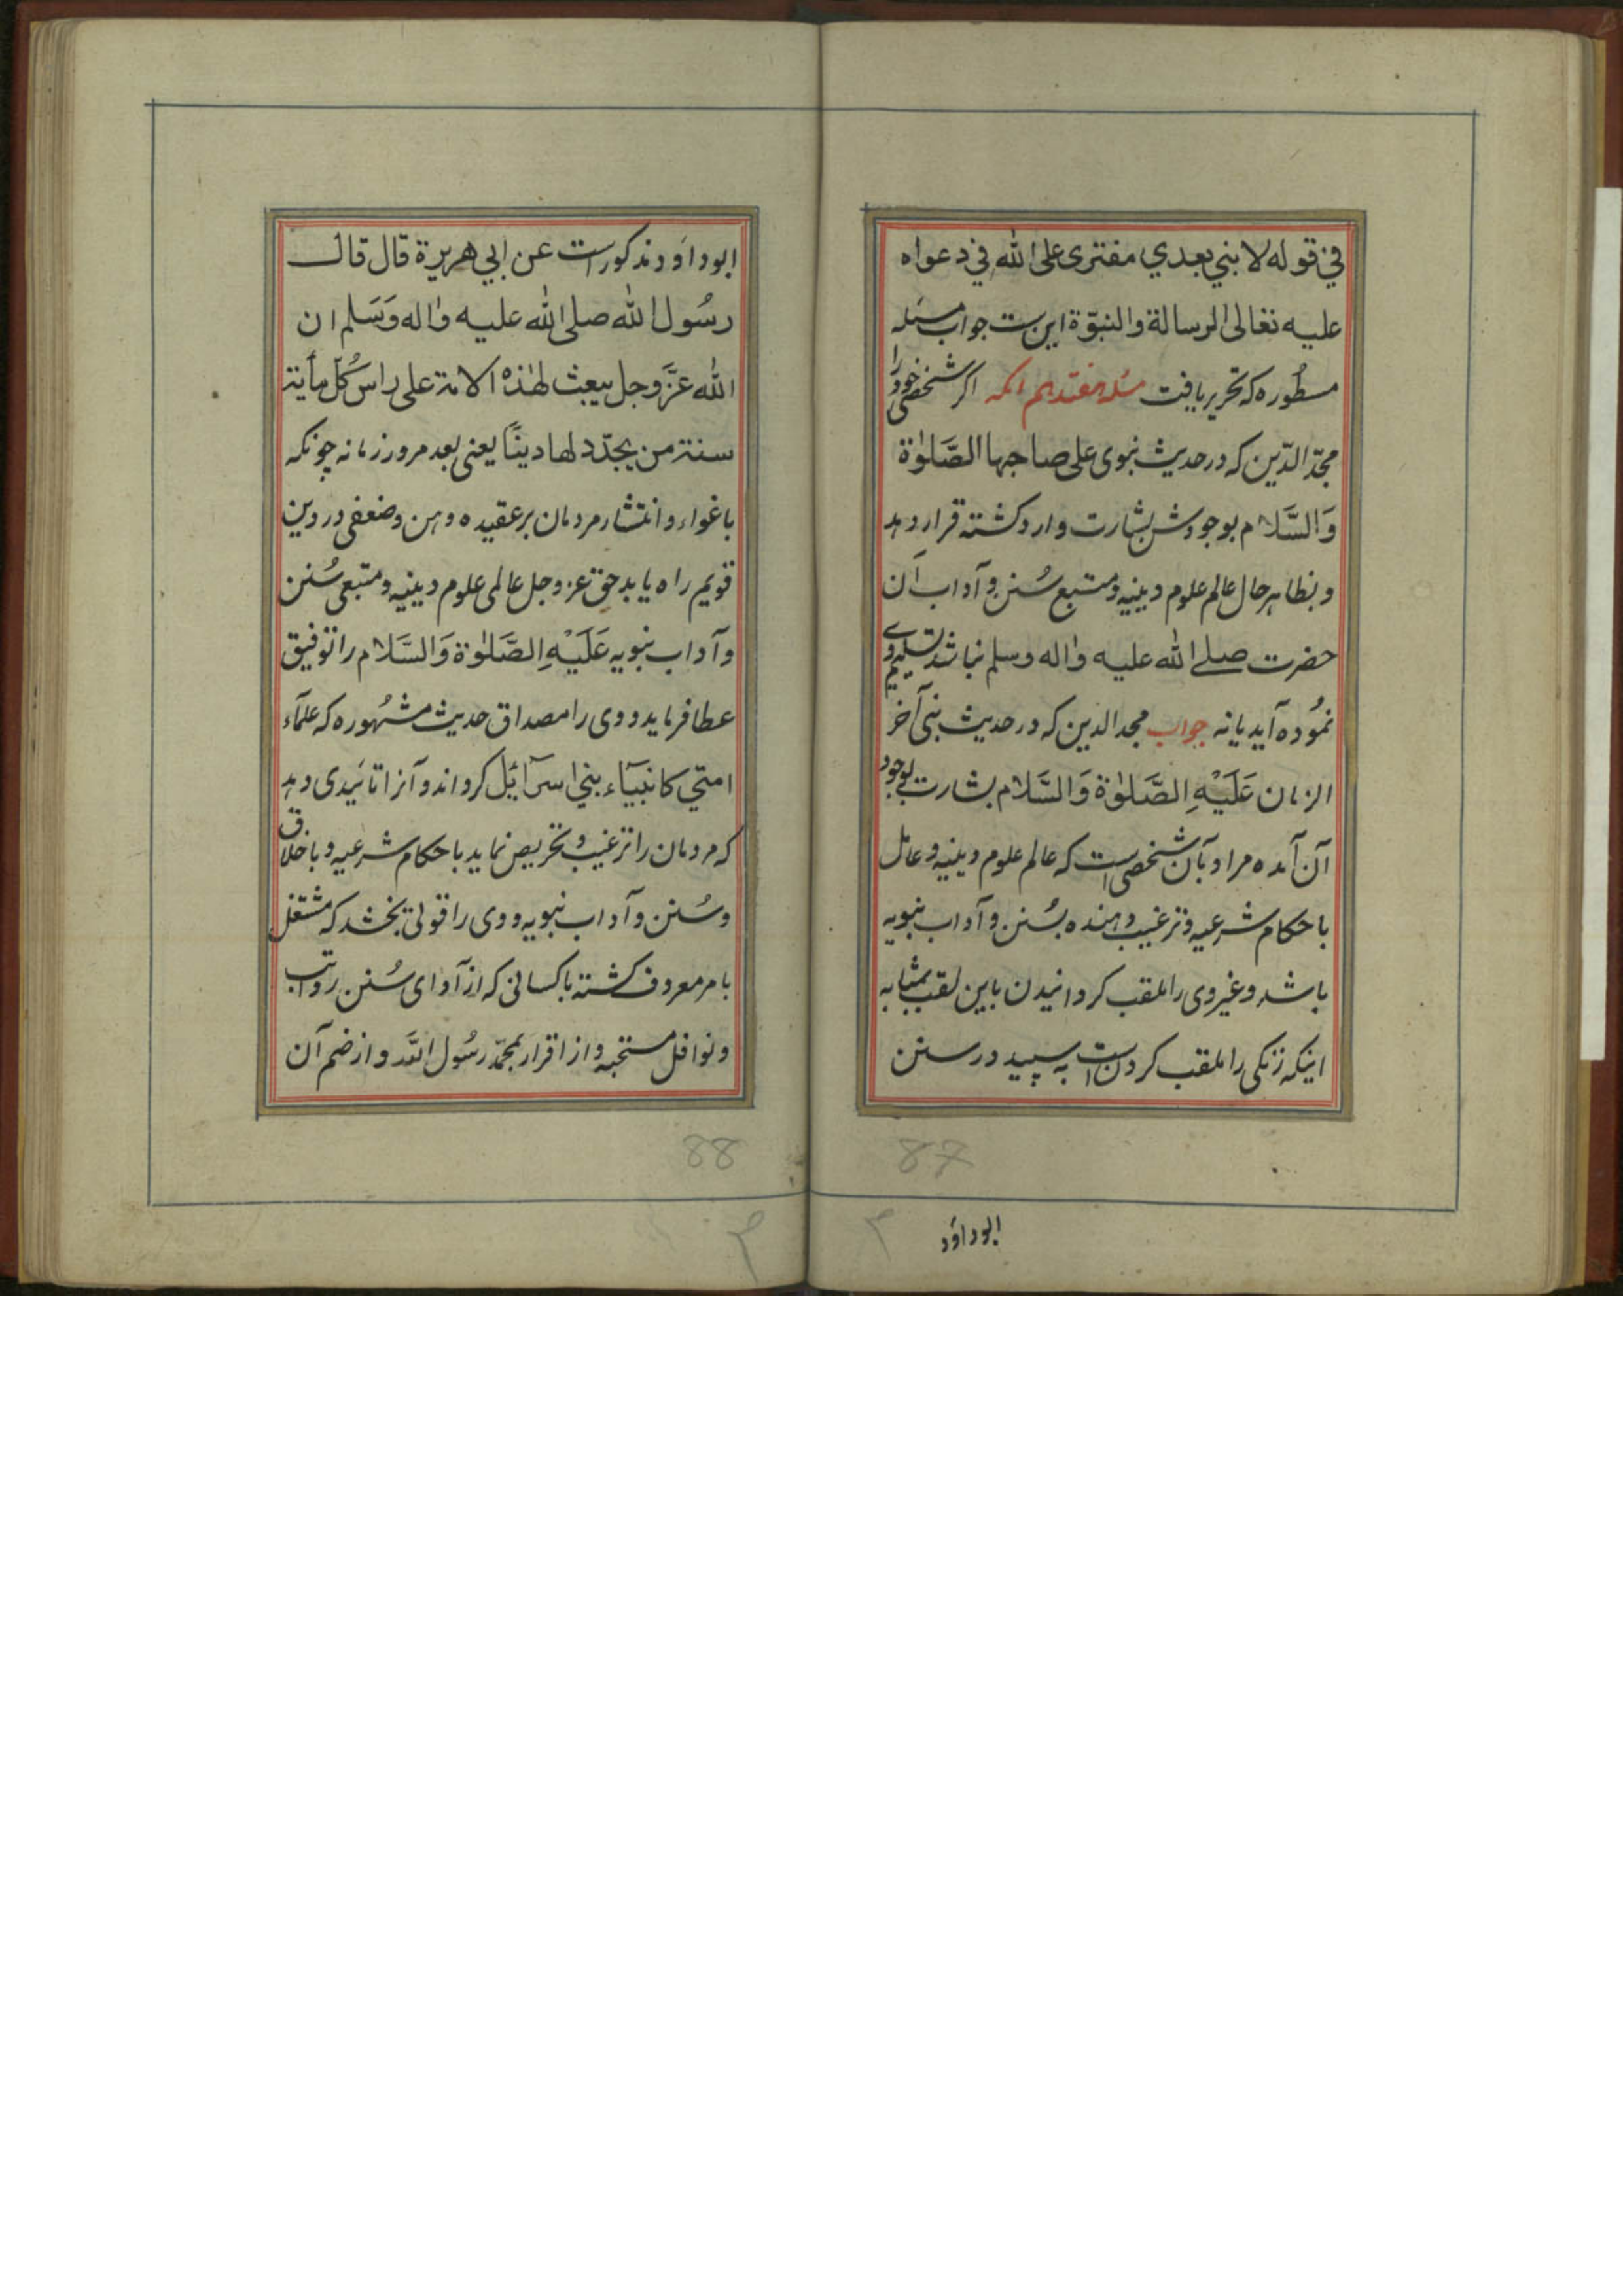 في قوله لا نبي بعدي مفترى على الله في دعواه
عليه تعالى الرسالة والنبوّة اینست جواب مسئله
مسطُوره که تحریر یافت مسئله هفتدهم آنکه اکر شخصی خود را
مجدّ الدّین که در حدیث نبوی علی صاحبها الصَّلوٰة
وَالسَّلام بوجودش بشارت وارد کشته قرار دهد
و بظاهر حال عالم علوم دینیه و متبع سُنن و آداب آن
حضرت صلے الله علیه واله وسلم نباشد تسلیم وے
نمُوده آید یا نه جواب مجد الدین که در حدیث نبی آخر
الزمان عَلَيْهِ الصَّلوٰة وَالسَّلام بشارت بوجود
آن آمده مراد بآن شخصی است که عالم علوم دینیه و عامل
باحکام شرعیه و ترغیب دهنده بسُنن و آداب نبویه
باشد و غیر وی را ملقب کردانیدن باین لقب بمثابه
اینکه زنکی را ملقب کردن است به سپید در سنن
87
ابوداؤد
ابوداؤد مذکور است عن ابي هريرة قال قال
رسُول الله صلى الله عليه واله وَسَلم ان
الله عزّ وجل يبعث لهٰذه الامة على راس كُلّ مأية
سنة من يجدّد لها دينًا یعنی بعد مرور زمانه چونکه
باغواء و انتشار مردمان بر عقیده وهن و ضعفی در دین
قویم راه یابد حق عز و جل عالمی علوم دینیه و متبعی سُنن
و آداب نبویه عَلَيْهِ الصَّلوٰة وَالسَّلام را توفیق
عطا فرماید و وی را مصداق حدیث مشہُوره که علمآء
امتي كانبيآء بني اسرآئيل کرداند و آنرا تائیدی دهد
که مردمان را ترغیب و تحریص نماید باحکام شرعیه و باخلاق
و سُنن و آداب نبویه و وی را قوتی بخشد که مشتغل
بامر معروف کشته باکسانی که از آدای سُنن رواتب
و نوافل مستحبه و از اقرار بمحمّد رسُول الله و از ضم آن
88